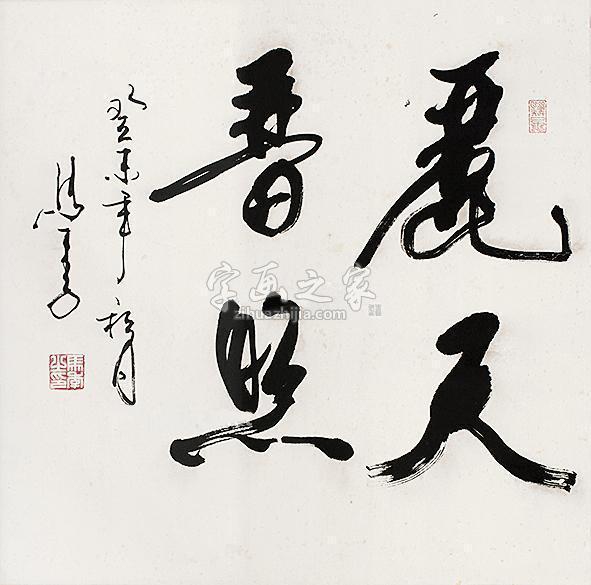 麗天
普照
癸未年秋月
字画之家
zihuazhijia.com